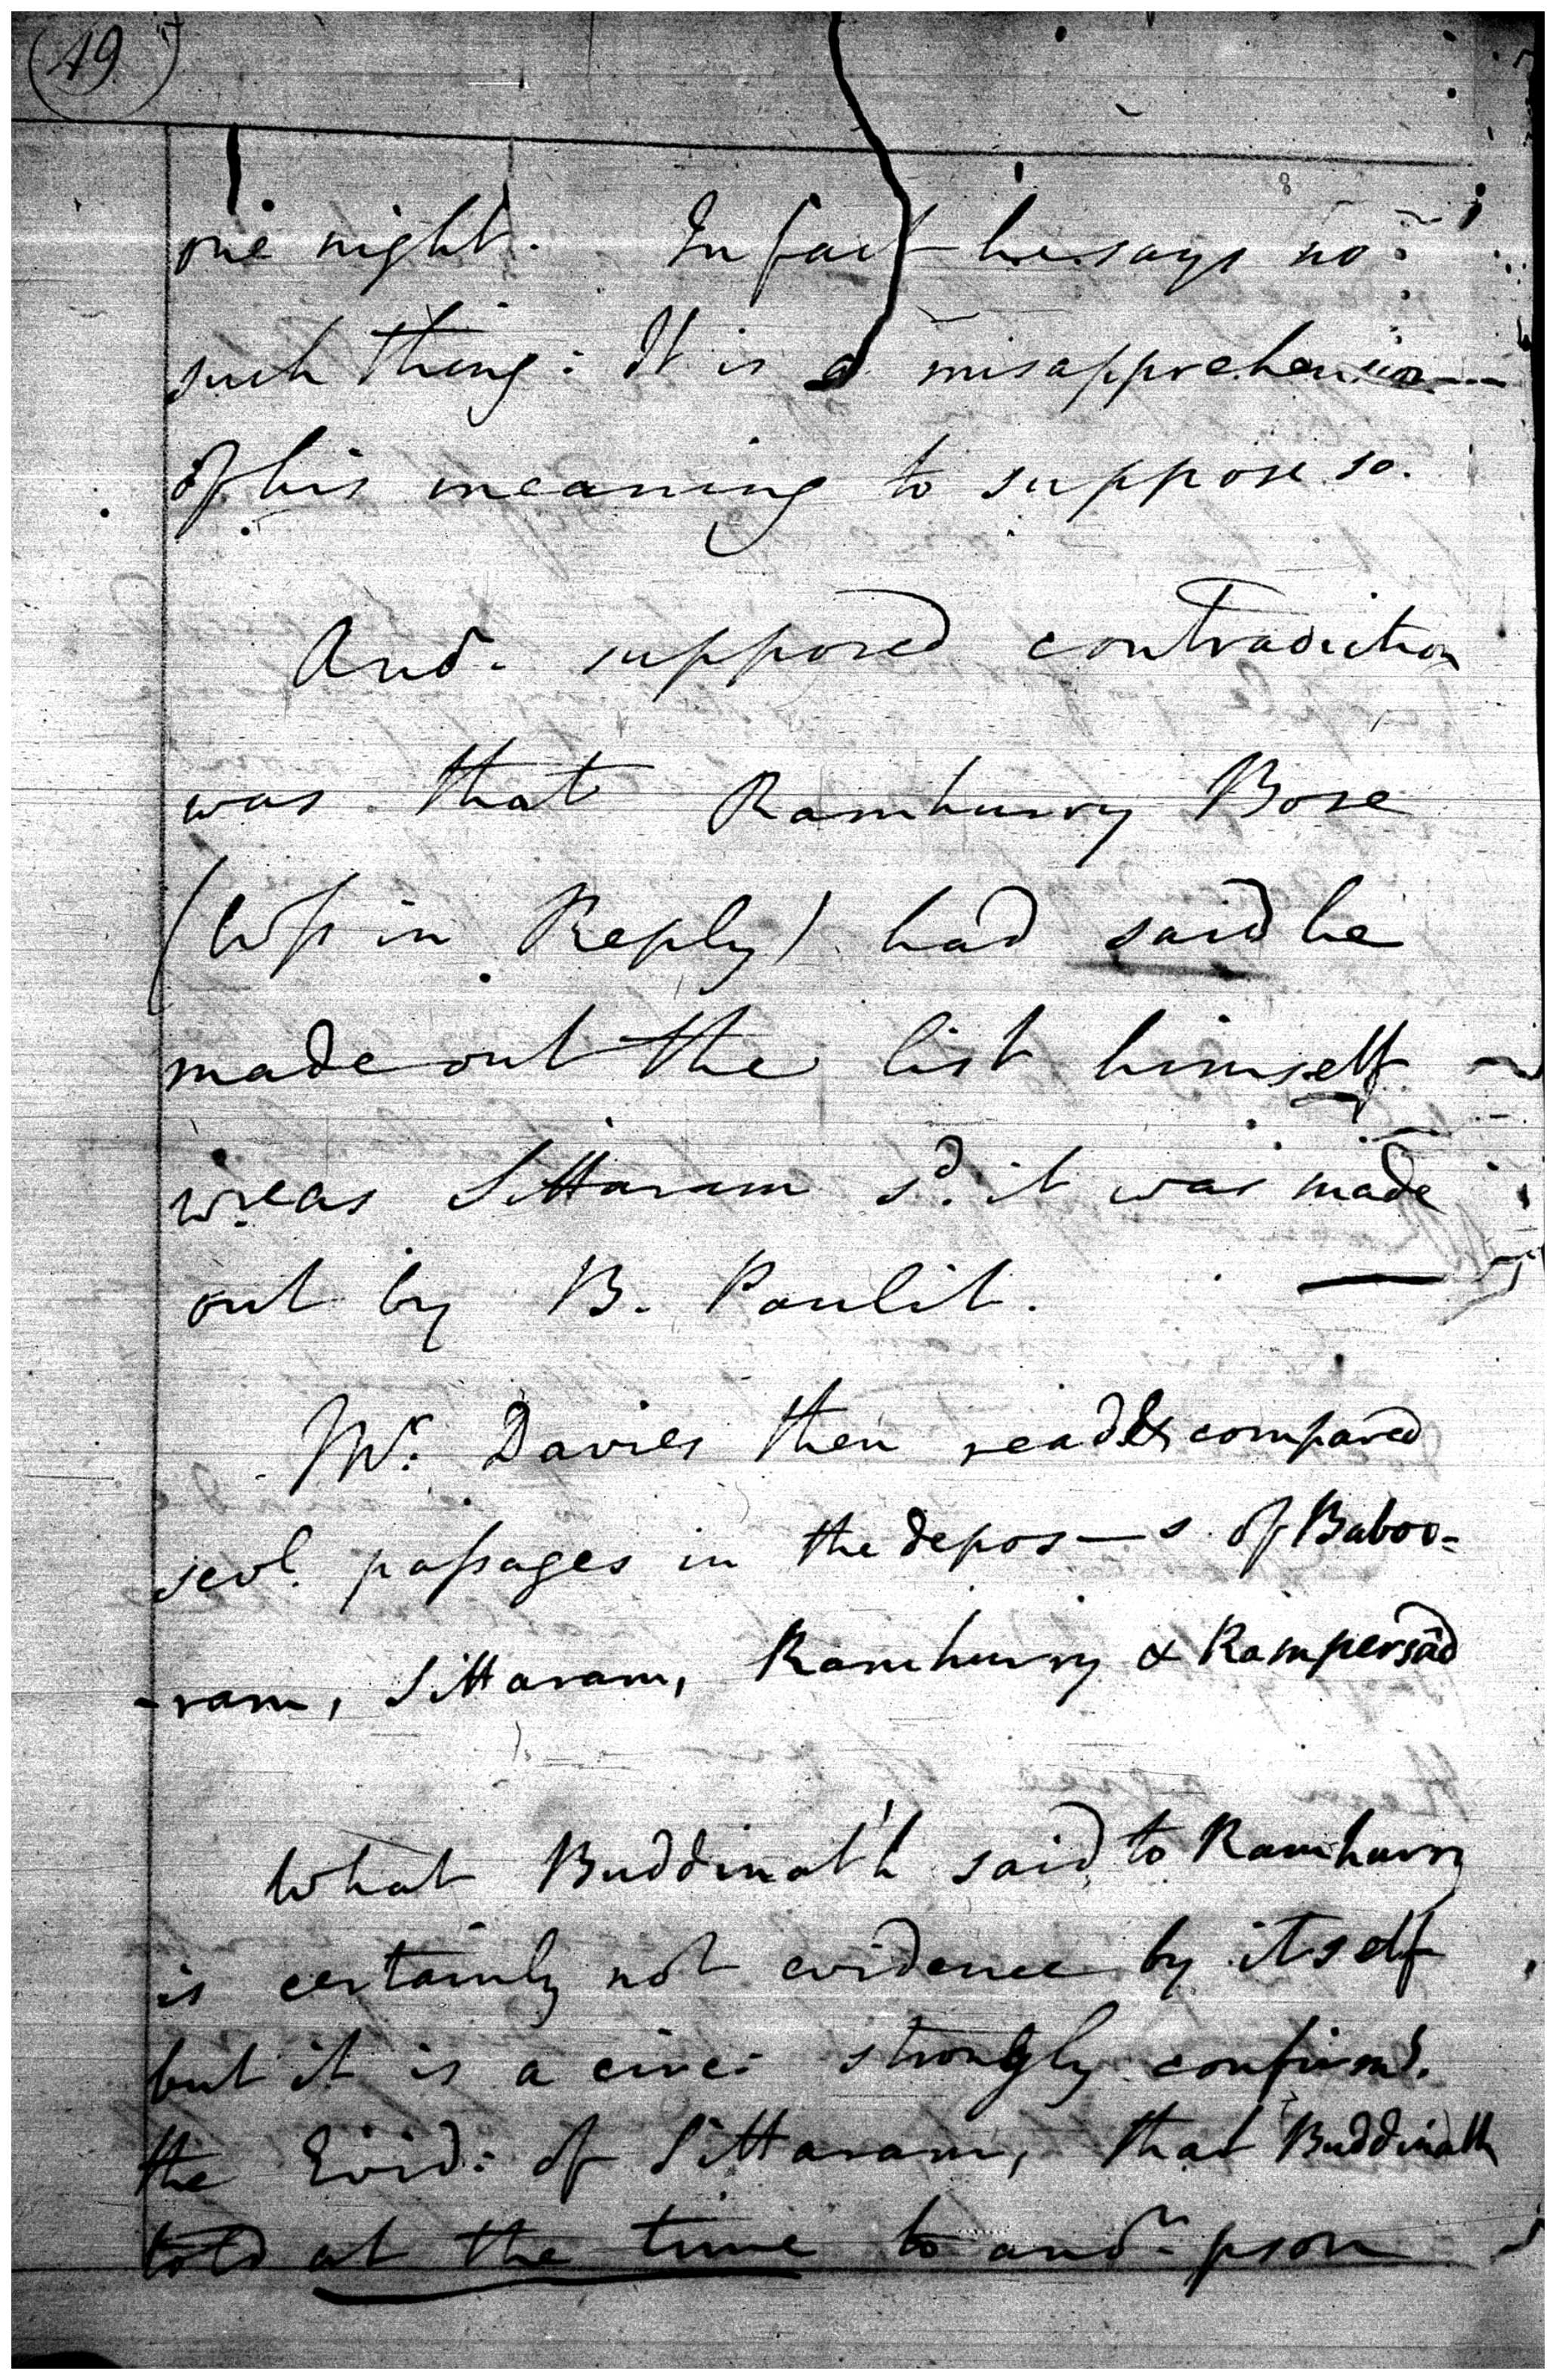 (49)
one night. In fact he says no
such thing: It is a misapprehension
of his meaning to suppose so.
Anō. supposed contradiction
was that Ramhurry Bose
(Wss in Reply) had said he
made out the list himself
wreas Sittaram sd. it was made
out by B. Paulit.
Mr. Davies then read & compared
sevl. passages in the depos—s of Baboo=
-ram, Sittaram, Ramhurry & Rampersād
What Buddinat'h said to Ramhurry
is certainly not evidence by itself
but it is a circ: strongly confirmg.
the Evid: of Sittaram, that Buddinath
told at the time to anor. pson